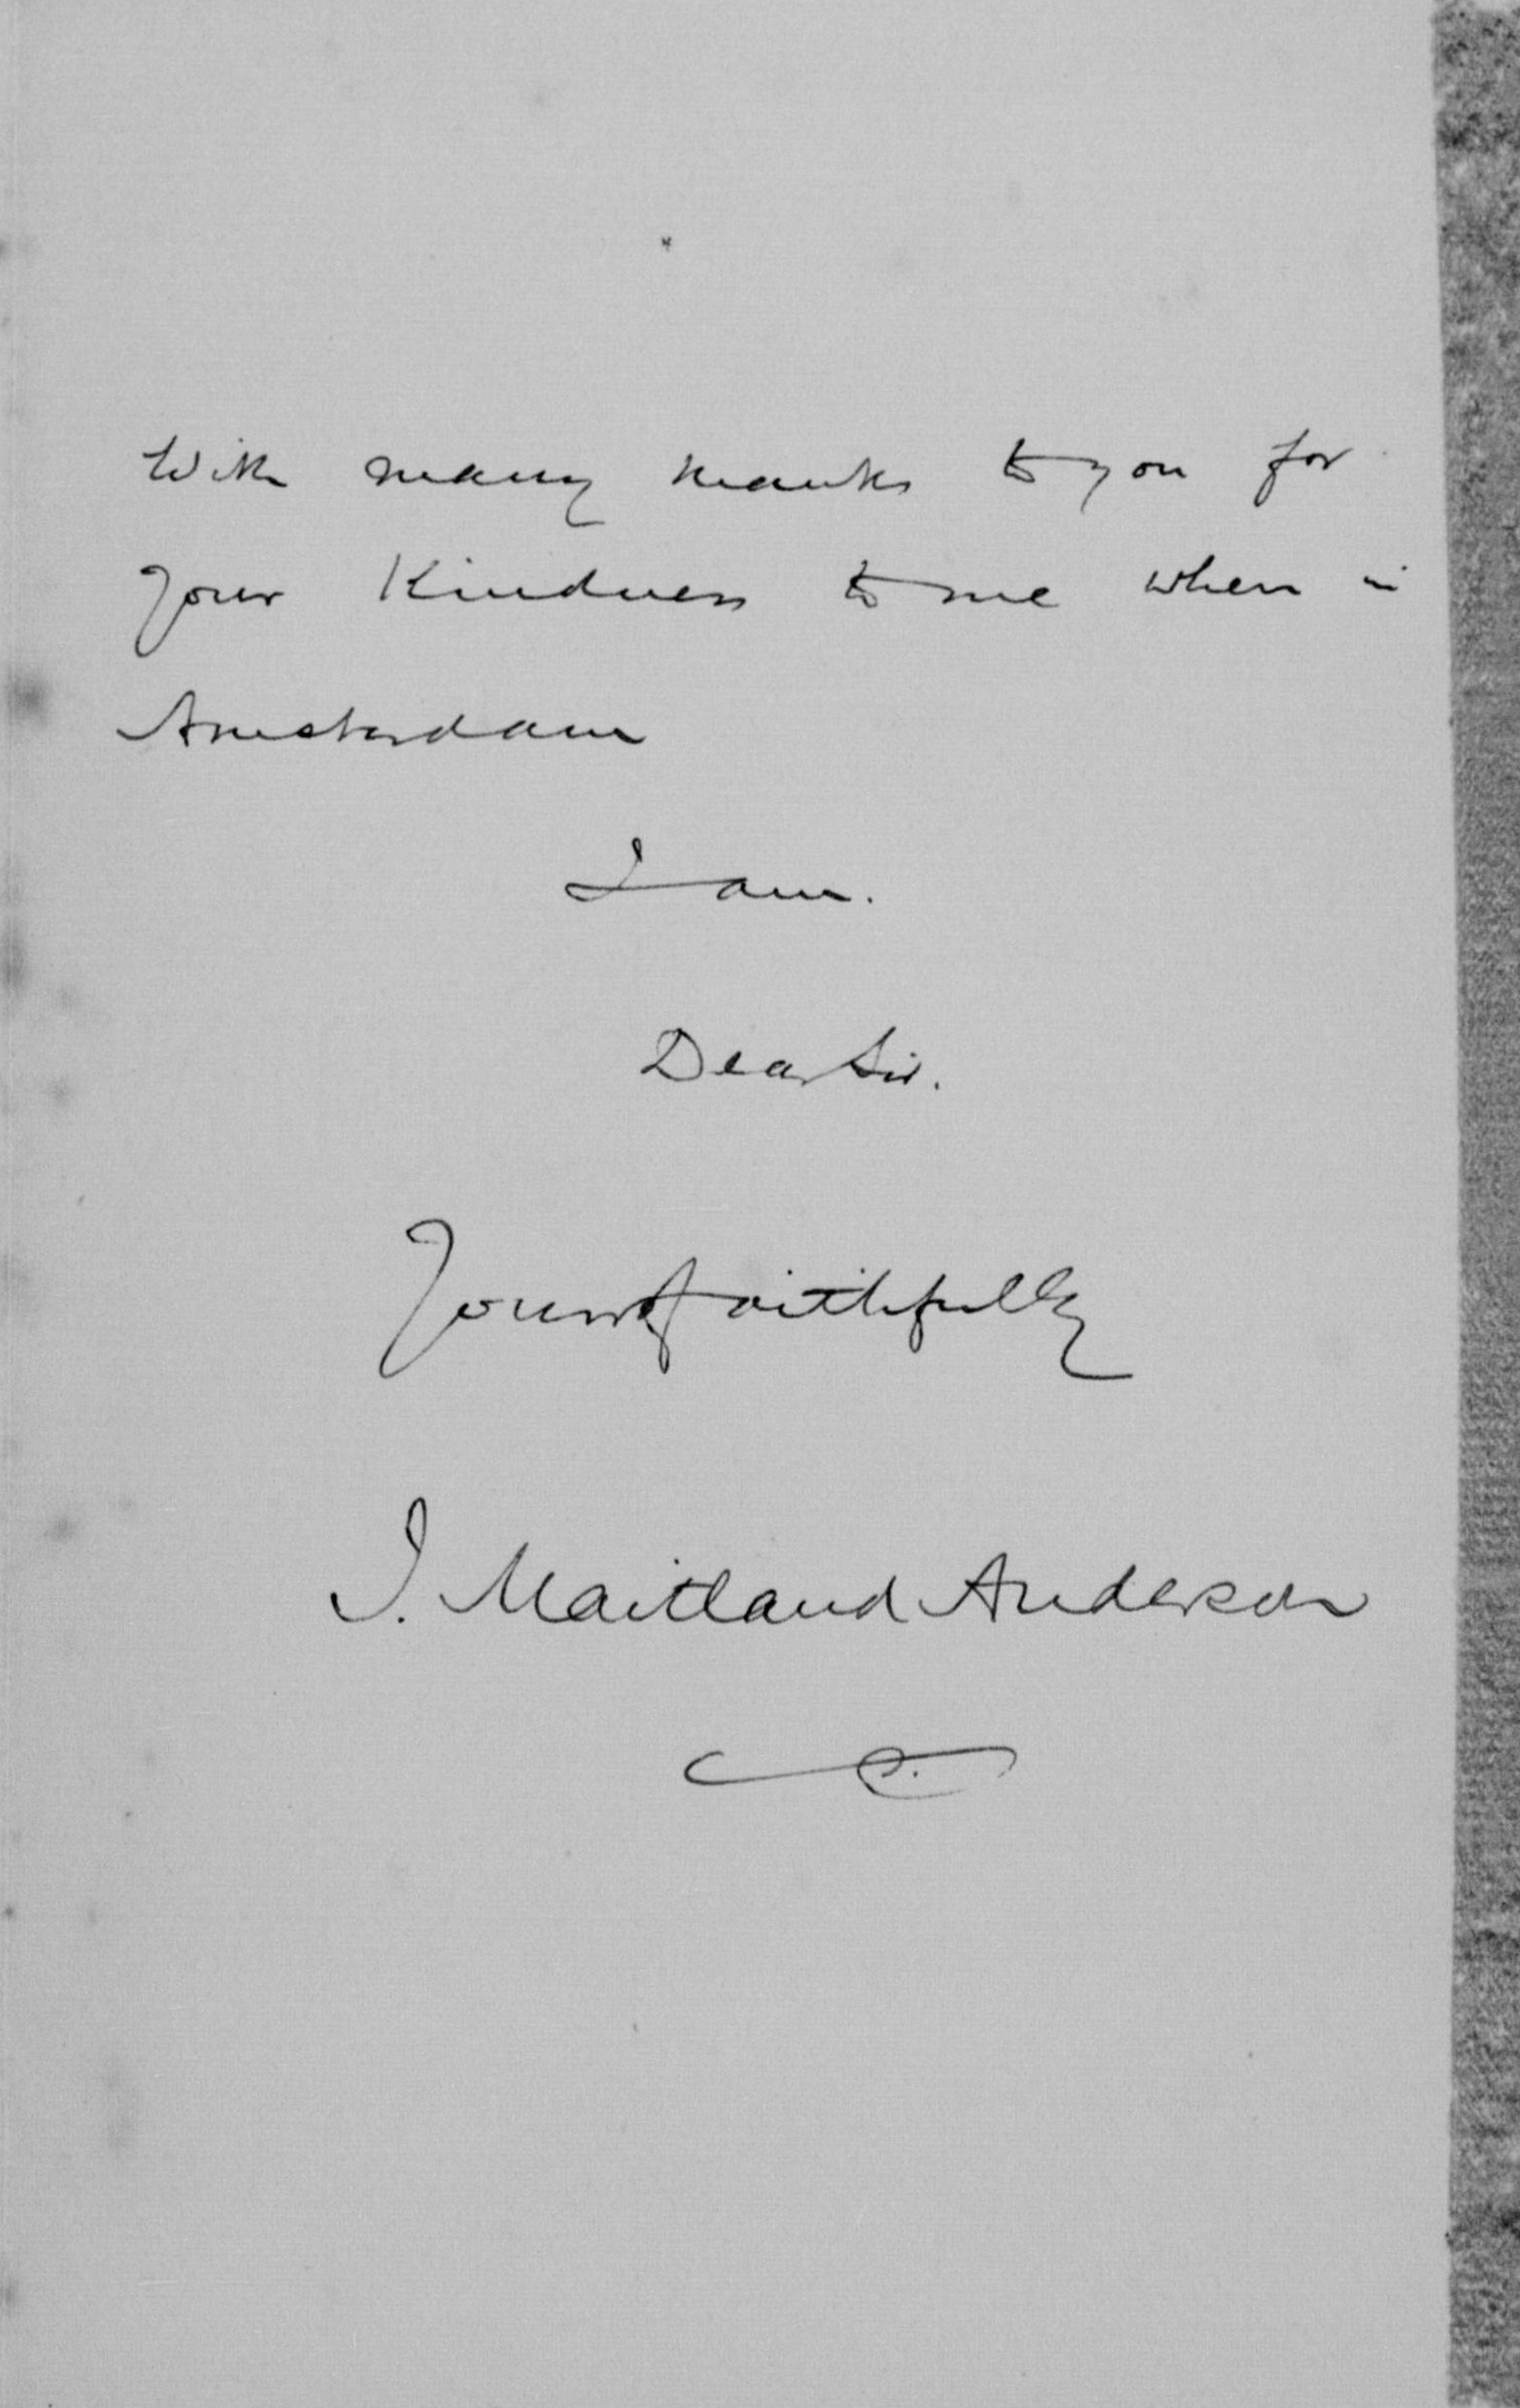 With many thanks to you for
your kindness to me when in
Amsterdam
I am.
Dear Sir.
Yours faithfully
J. Maitland Anderson